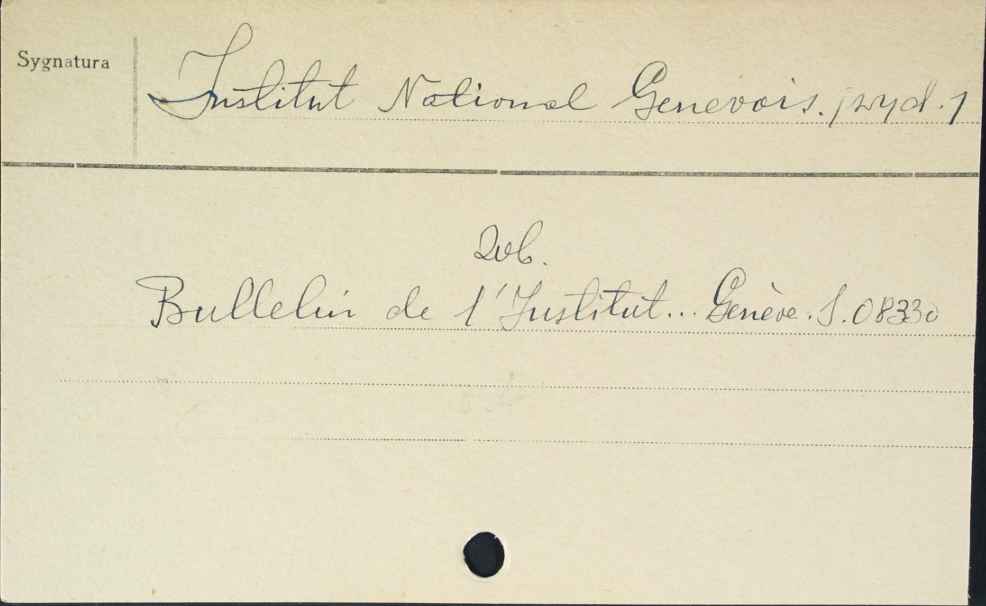 Sygnatura
Institut National Genevois. [wyd.]
Zob.
Bulletin de l'Institut... Genève. S. 08330